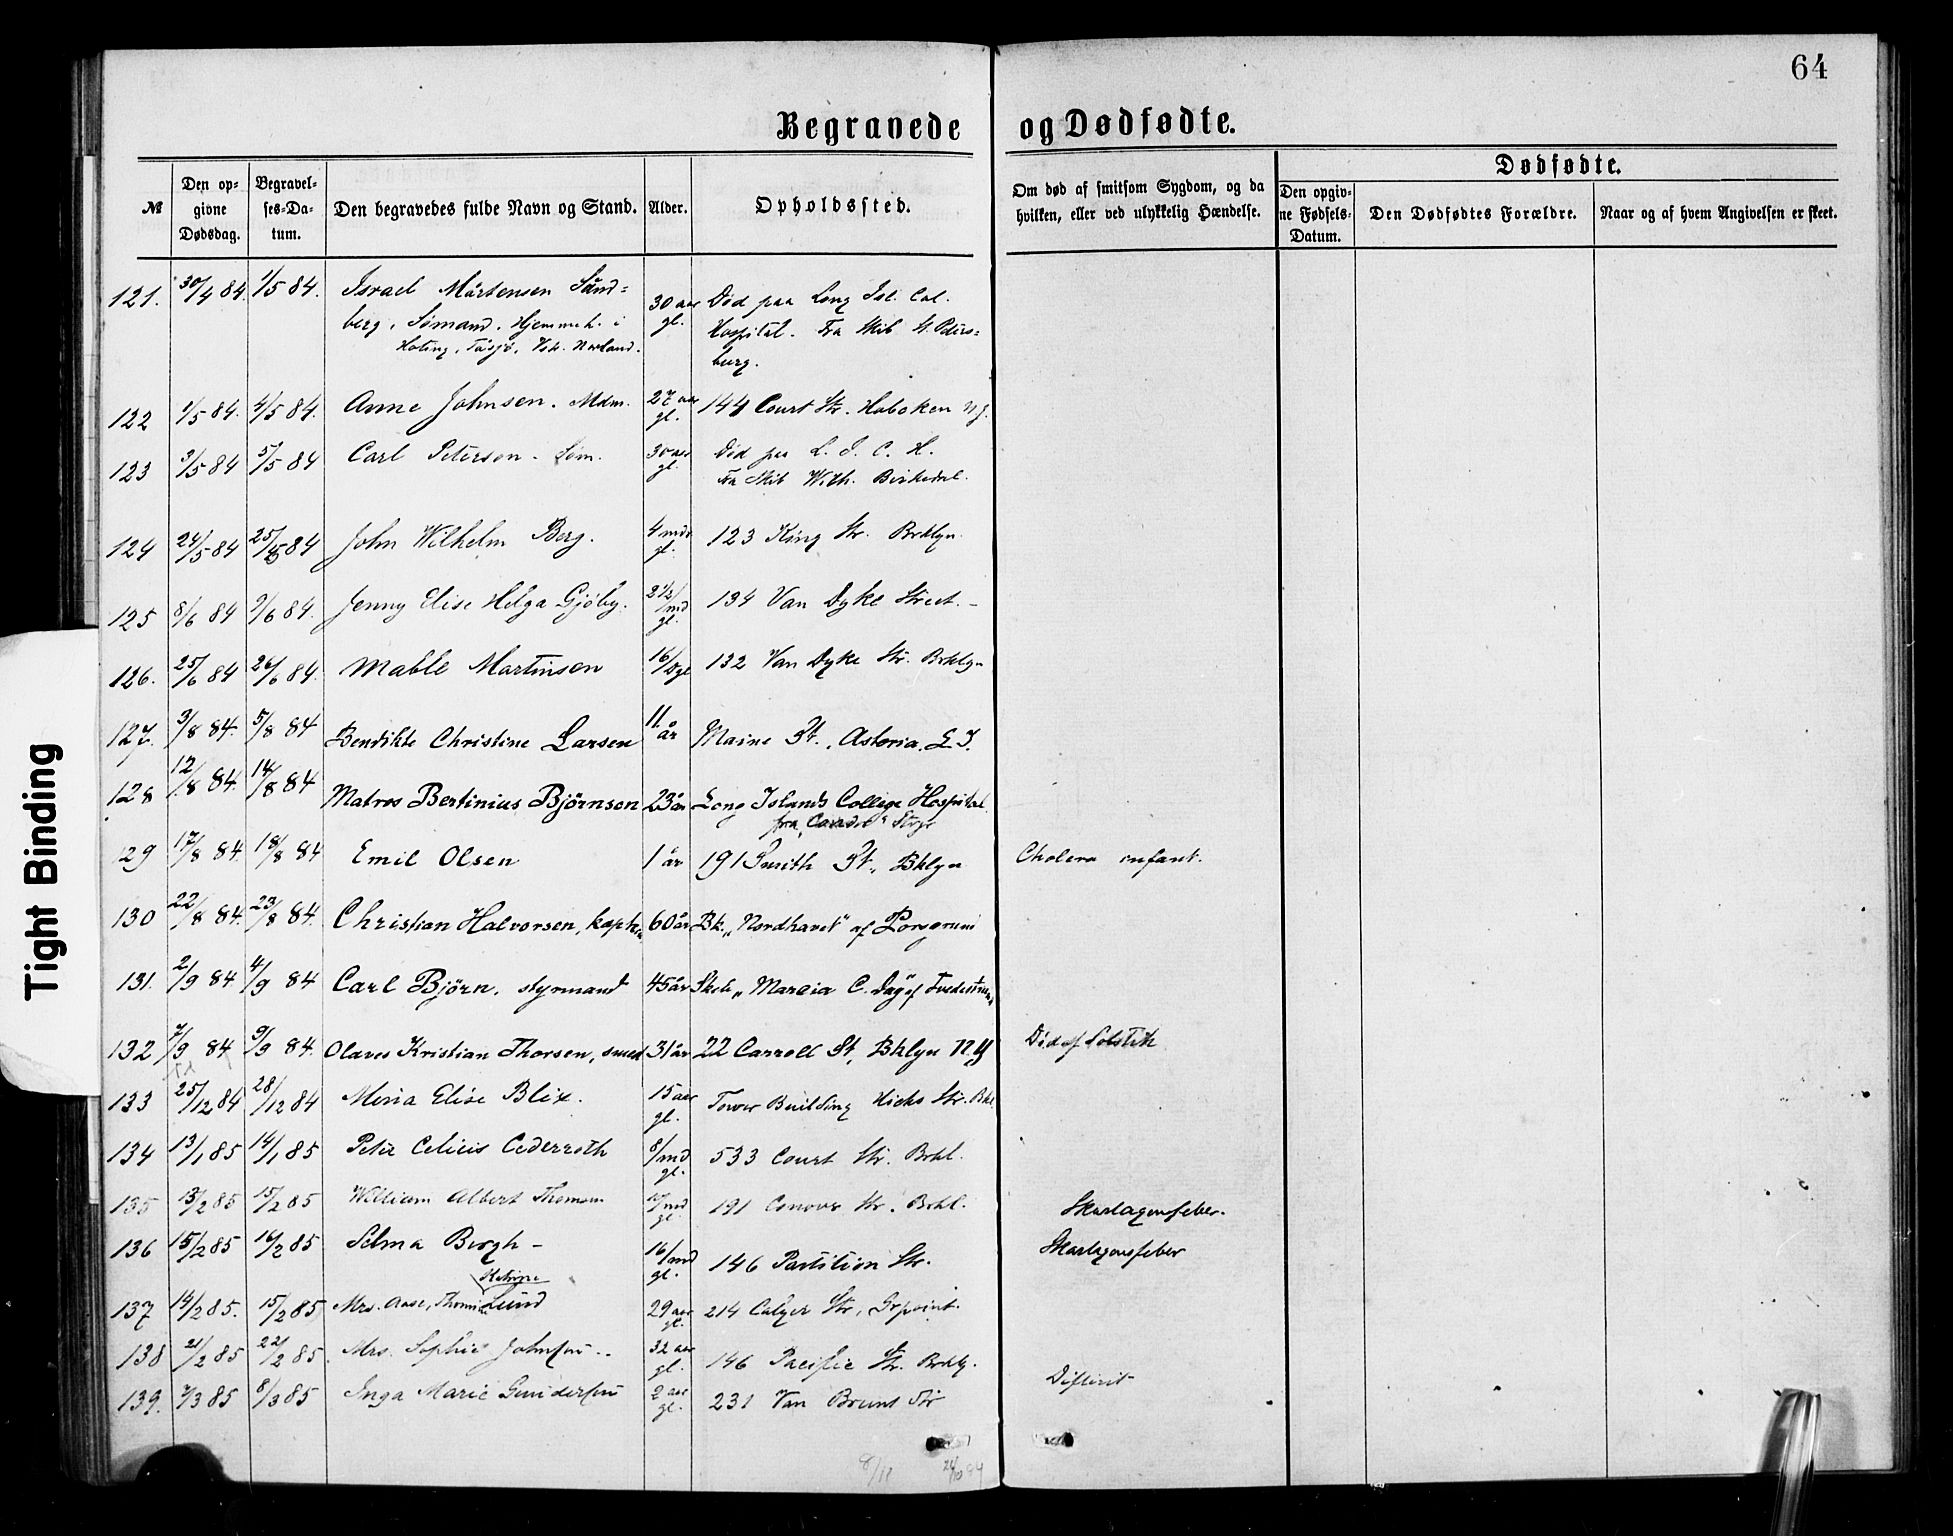 64
Begravede og Dødfødte.
Dødfødte.
№
Den op=
givne
Dødsdag.
Begravel=
ses=Da=
tum.
Den begravedes fulde Navn og Stand.
Alder.
Opholdssted.
Om død af smitsom Sygdom, og da
hvilken, eller ved ulykkelig Hændelse.
Den opgiv=
ne Fødsels=
Datum.
Den Dødfødtes Forældre.
Naar og af hvem Angivelsen er skeet.
121. 30/4 84. 1/5 84. Israel Mårtensen Sånd= 30 aar gl. Død paa Long Isl. Col.
berg, Sømand. Hjemmeh. i Hospital. Fra Skib St. Peters=
Hoting, Tåsjö, Norland. burg.
122 1/5 84. 4/5 84. Anne Johnsen. Mdm. 27 aar gl. 144 Court Str. Hoboken N.J.
123 3/5 84 5/5 84 Carl Peterson. Søm. 30 aar gl. Død paa L. I. C. H.
Fra Skib With. Birkedal.
124 24/5 84 25/5 84 John Wilhelm Berg. 4 mdr gl. 123 King Str. Brklyn.
125 8/6 84 9/6 84. Jenny Elise Helga Gjöby. 2 1/2/md gl. 134 Van Dyke Street. -
126. 25/6 84 26/6 84. Mable Martinsen 16/Dgl 132 Van Dyke Str. Brklyn
127. 3/8 84. 5/8 84 Bendikte Christine Larsen 11. år Maine St., Astoria. L.I.
128 12/8 84. 14/8 84 Matros Bertinius Björnson 23 år Long Islands College Hospital
fra "Carsde"
29 17/8 84. 18/8 84 Emil Olsen 1 år 191 Smith St., Bklyn Cholera infant.
130 22/8 84. 23/8 84. Christian Halvorsen, kaptein 60 år Bk. „Nordhavet" af Porsgrund
131. 2/9 84 4/9 84 Carl Björn, styrmand 45 år Skob. „Marcia C. Day" af Tvedestrand
132 7/9 84 9/9 84. Olaves Kristian Thorsen, smed 31 år 22 Carroll St, Bklyn N.Y Død af Solstik
133 25/12 84 28/12 84 Mina Elise Blix. 15 aar gl. Tower Building Hicks Str. Bkl.
134 13/1 85 14/1 85 Peter Celicis Cederroth 8/md gl. 533 Court Str. Brkl.
135 13/2 85 15/2 85 William Albert Thomsen md gl. 191 Conover Str. Brkl. Skarlagensfeber.
136 15/2 85 16/2 85 Selma Bergh - 16/md gl. 146 Partition Str. Skarlagensfeber
Katrine
137 14/2 85. 15/2 85 Mrs. Aase, Lund 29 aar gl. 214 Calyer Str, Grpoint.
138 21/2 85 22/2 85. Mrs. Sophie Johnsen.. 32 aar gl. 146 Pacific Str. Brklg.
139. 7/3 85 8/3 85 Inga Marie Gundersen 2 aar gl. 231 Van Brunt Str Difterit
8/12
Tight Binding